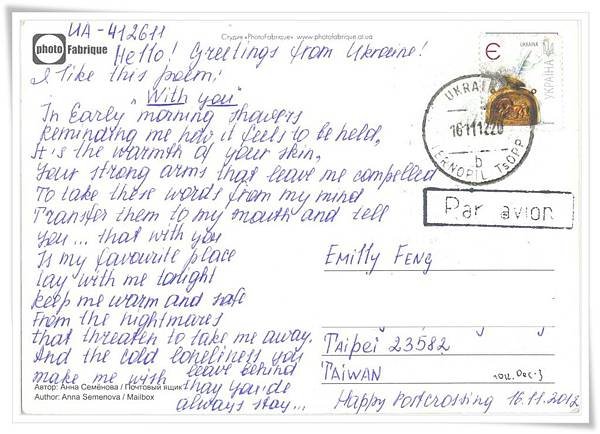 Студия «PhotoFabrique» www.photofabrique.at.ua
UA-412611
photo Fabrique
Hello! Greetings from Ukraine!
I like this poem:
"With you"
In Early morning showers
Reminding me how it feels to be held,
It's the warmth of your skin,
Your strong arms that leave me compelled
To take these words from my mind
Transfer them to my mouth and tell
you... that with you
Is my favourite place
lay with me tonight
keep me warm and safe
From the nightmares
that threaten to take me away.
And the cold loneliness you
leave behind
make me wish
thay you'de
always stay...
Автор: Анна Семёнова / Почтовый ящик
Author: Anna Semenova / Mailbox
Є
УКРАЇНА
UKRAINE
161112 20
b
TERNOPIL TsOPP
Par avion
Emilly Feng
Taipei 23582
Taiwan
2012. Dec. 3
Happy Postcrossing 16.11.2012